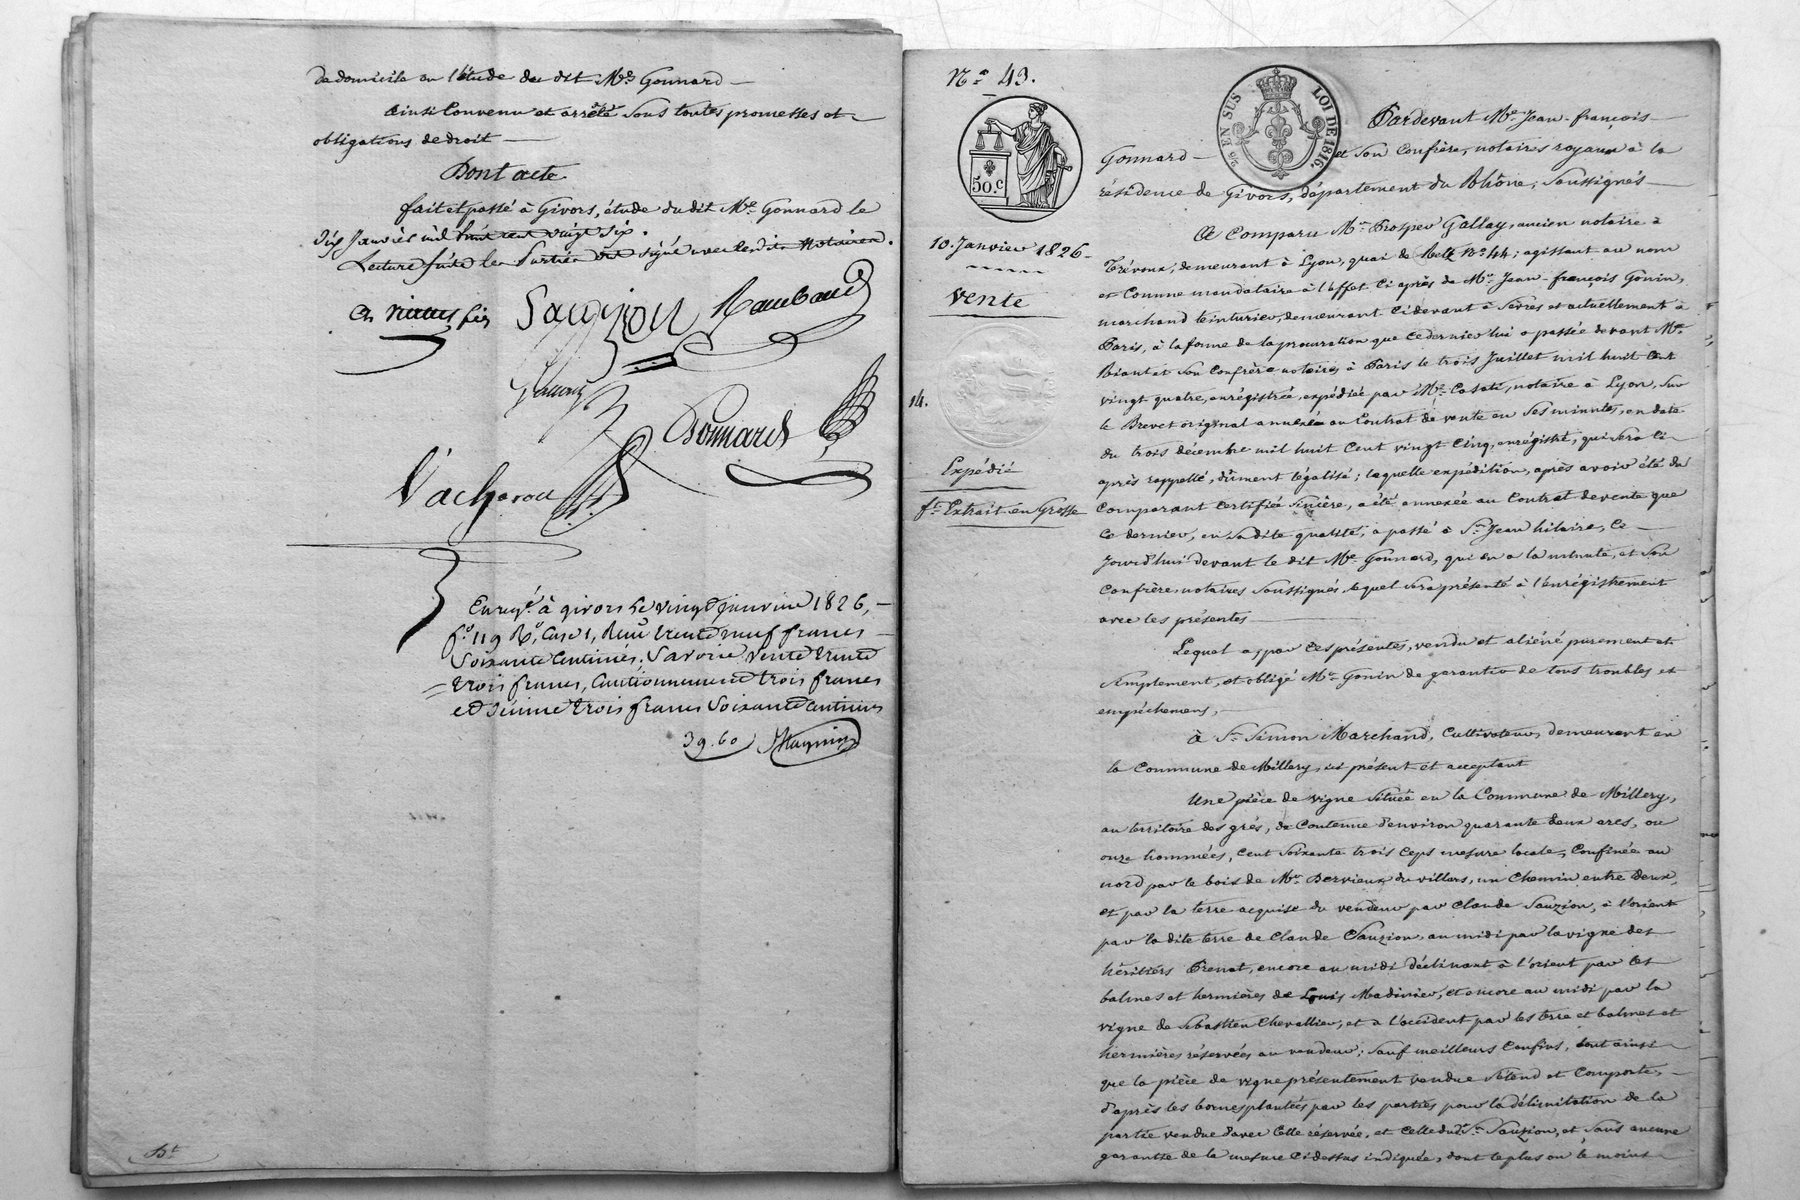 de domicile en l'étude du dit Me Gonnard
ainsi Convenu et arrêté Sous toutes promesses et
obligations de droit
Dont acte
fait et passé à Givors, étude du dit Me Gonnard le
dix Janvier mil huit cent vingt six.
Lecture faite les Parties ont signé avec les dits Notaires.
Saugnon Rambaud
Gonnard
Vacheron
Enregé à givors le vingt janvier 1826,
fo 119 Ro, Case 1, Reçu trente neuf francs
Soixante Centimes, Savoir vente trente
trois francs, Cautionnement trois francs
et dixième trois francs Soixante Centimes
39.60
Bt
No 43.
50.c
EN SUS
LOI DE 1816.
10. Janvier 1826
Vente
14.
Expédié
ft Extrait en Grosse
Pardevant Me Jean-françois
Gonnard et Son Confrère, notaires royaux à la
résidence de Givors, département du Rhône, Soussignés
A Comparu Mr Prosper Gallay, ancien notaire à
Trévoux, demeurant à Lyon, quai de Retz No 44; agissant au nom
et Comme mandataire à l'effet Ci après de Mr Jean-françois Gonin,
marchand teinturier, demeurant Cidevant à Sèvres et actuellement à
Paris, à la forme de la procuration que Ce dernier lui a passée devant Me
Riant et Son Confrère notaires à Paris le trois Juillet mil huit Cent
vingt quatre, enrégistrée, expédiée par Me Casati, notaire à Lyon, Sur
le Brevet original annéxé au Contrat de vente en Ses minutes, en date
du trois décembre mil huit Cent vingt Cinq, enrégistré, qui Sera Ci-
après rappellé, dûment légalisé; laquelle expédition, après avoir été du
Comparant Certifiée Sincère, a été annexée au Contrat de vente que
Ce dernier, en Sa dite qualité, a passé à Sr Jean hilaire, Ce
Jourd'hui devant le dit Me Gonnard, qui en a la minute, et Son
Confrère, notaires Soussignés lequel Sera présenté à l'enrégistrement
avec les présentes
Lequel a, par Ces présentes, vendu et aliéné purement et
Simplement, et obligé Mr Gonin de garantir de tous troubles et
empêchemens,
à Sr Simon Marchand, Cultivateur, demeurant en
la Commune de Millery, ici présent et acceptant
Une pièce de vigne Située en la Commune de Millery,
au territoire des grés, de Contenue d'environ quarante deux ares, ou
onze hommées, Cent Soixante trois Ceps mesure locale, Confinée au
nord par le bois de Mr Bervieux du villars, un Chemin entre deux,
et par la terre acquise du vendeur par Claude Sauzion, à l'orient
par la dite terre de Claude Sauzion, au midi par la vigne des
héritiers Prenat, encore au midi déclinant à l'orient par les
balmes et hermières de Louis Madinier, et encore au midi par la
vigne de Sébastien Chevallier, et à l'occident par les terre et balmes et
hermières réservées au vendeur; Sauf meilleurs Confins, tout ainsi
que la pièce de vigne présentement vendue S'étend et Comporte,
d'après les bornes plantées par les parties pour la délimitation de la
partie vendue d'avec Celle réservée, et Celle du dt Sr Sauzion, et Sans aucune
garantie de la mesure Cidessus indiquée, dont le plus ou le moins